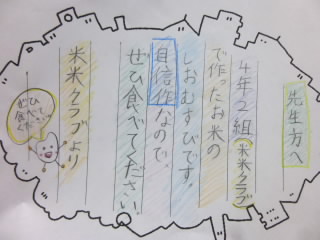 先生方へ
4年2組(米米クラブ)
で作ったお米の
しおむすびです。
自信作なので、
ぜひ食べてください。
米米クラブより
ぜひ
食べて